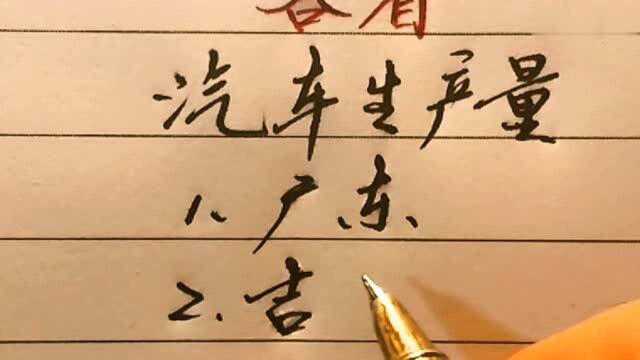 各省
汽车生产量
1、广东
2.吉